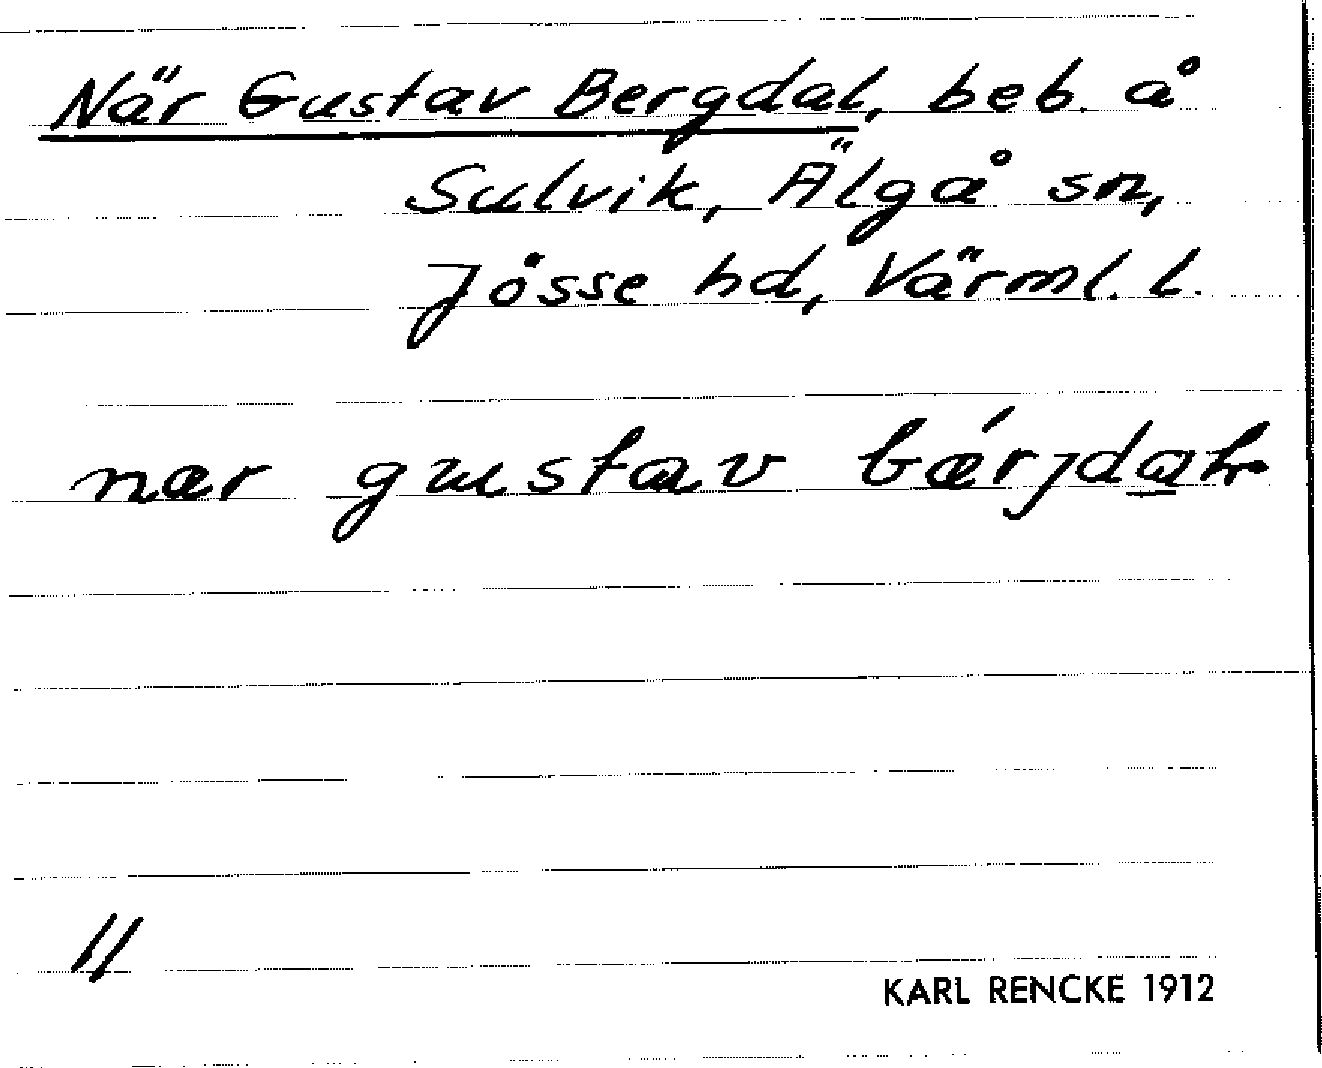 När Gustav Bergdal, beb. å
Sulvik, Älgå sn,
Jösse hd, Värml. l.
nær gustav bǽrjdal
KARL RENCKE 1912